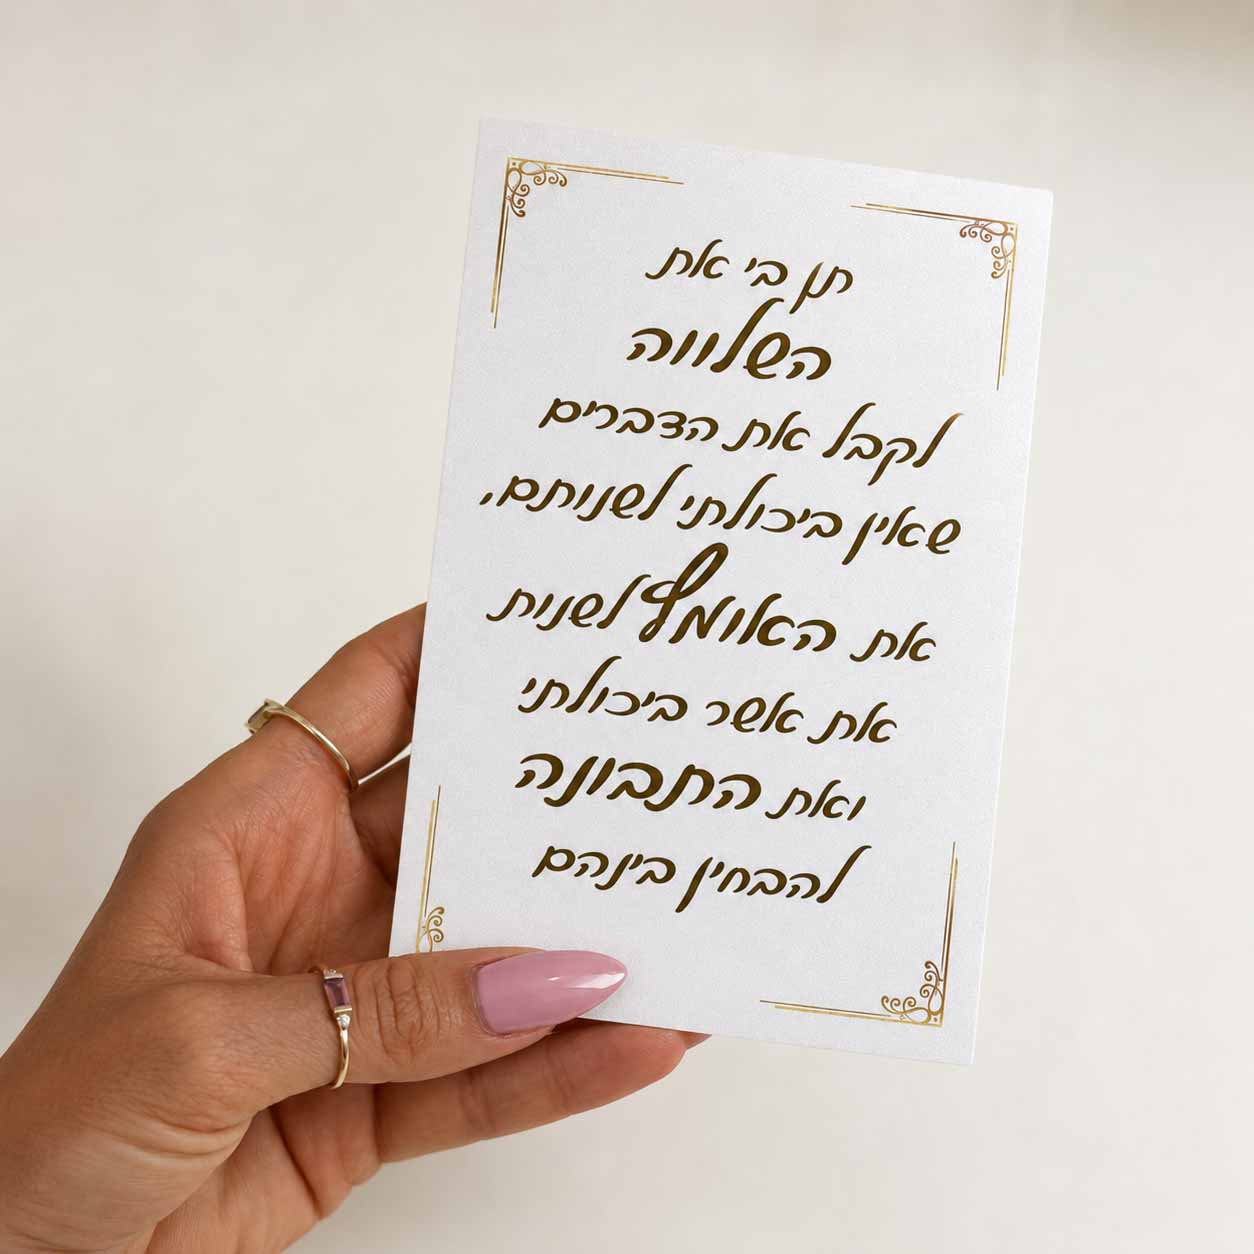 תן בי את
השלווה
לקבל את הדברים
שאין ביכולתי לשנותם,
את האומץ לשנות
את אשר ביכולתי
ואת התבונה
להבחין בינהם